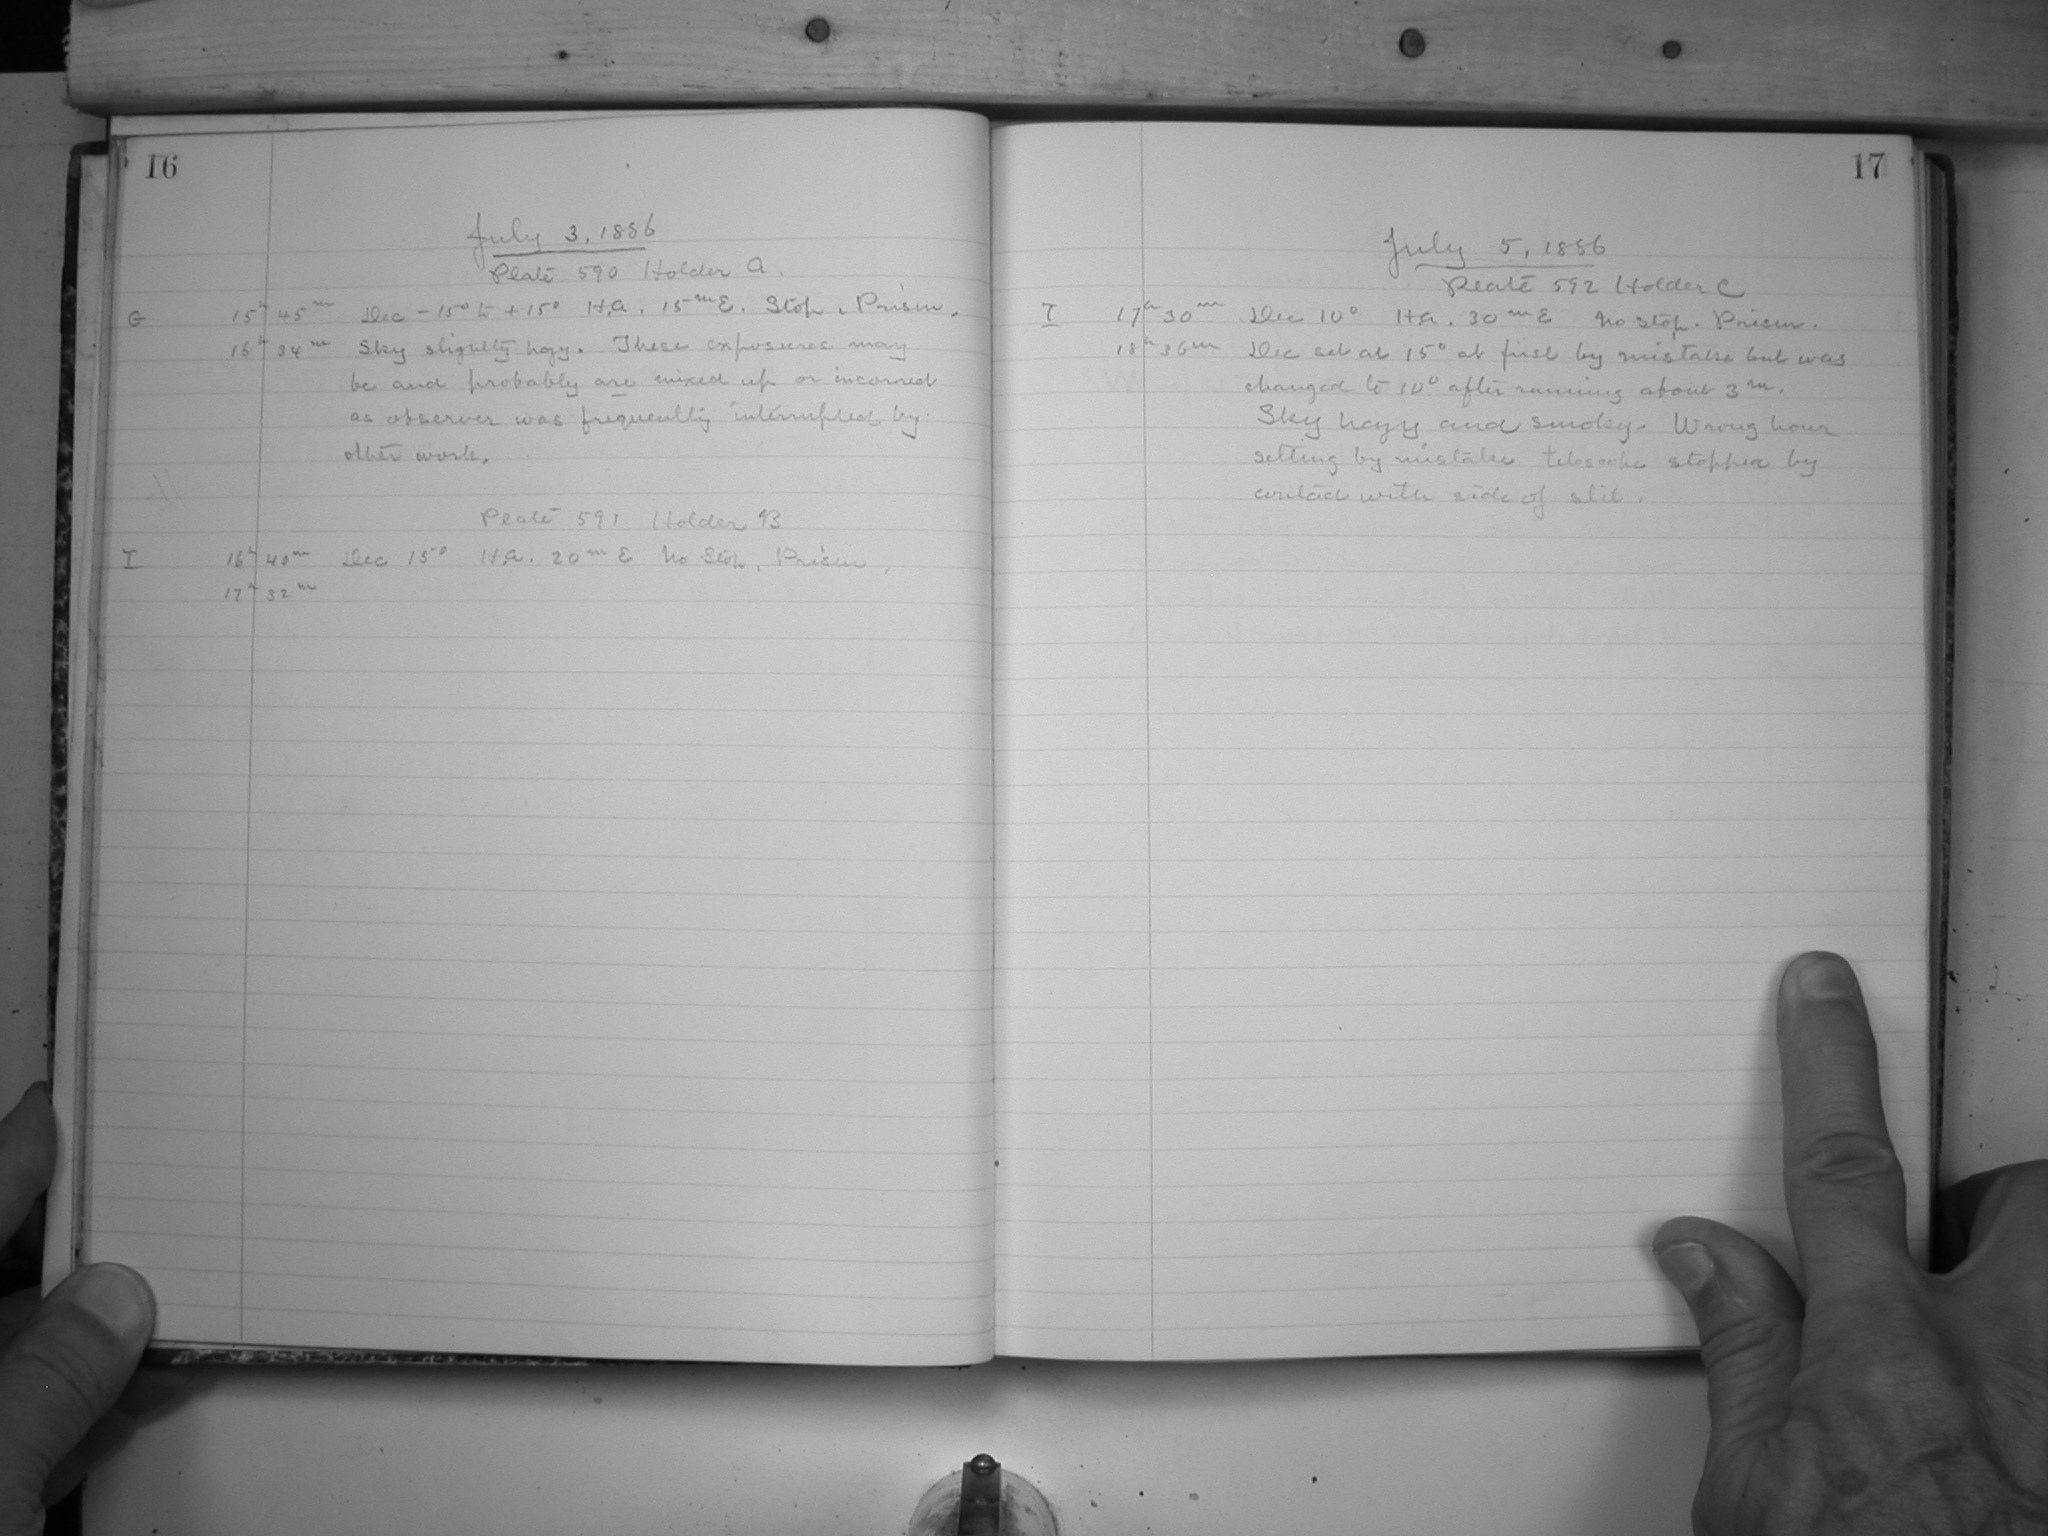 16
July 3, 1886
Plate 590 Holder A.
G 15h 45m Dec -15° to +15° H.A. 15m E. Stop. Prism.
16h 34m Sky slightly hazy. These exposures may
be and probably are mixed up or incorrect
as observer was frequently interrupted by
other work.
Plate 591 Holder B
I 16h 40m Dec 15° H.A. 20m E No Stop. Prism.
17h 32m
17
July 5, 1886
Plate 592 Holder C
I 17h 30m Dec 10° H.A. 30m E No Stop. Prism.
18h 36m Dec set at 15° at first by mistake but was
changed to 10° after running about 3m.
Sky hazy and smoky. Wrong hour
setting by mistake telescope stopped by
contact with side of slit.